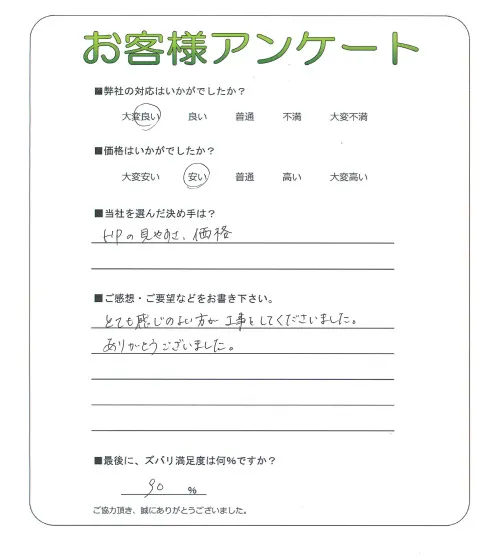 お客様アンケート
■弊社の対応はいかがでしたか?
大変良い 良い 普通 不満 大変不満
■価格はいかがでしたか?
大変安い 安い 普通 高い 大変高い
■当社を選んだ決め手は?
HPの見やすさ、価格
■ご感想・ご要望などをお書き下さい。
とても感じのよい方が工事をしてくださいました。
ありがとうございました。
■最後に、ズバリ満足度は何%ですか?
90 %
ご協力頂き、誠にありがとうございました。